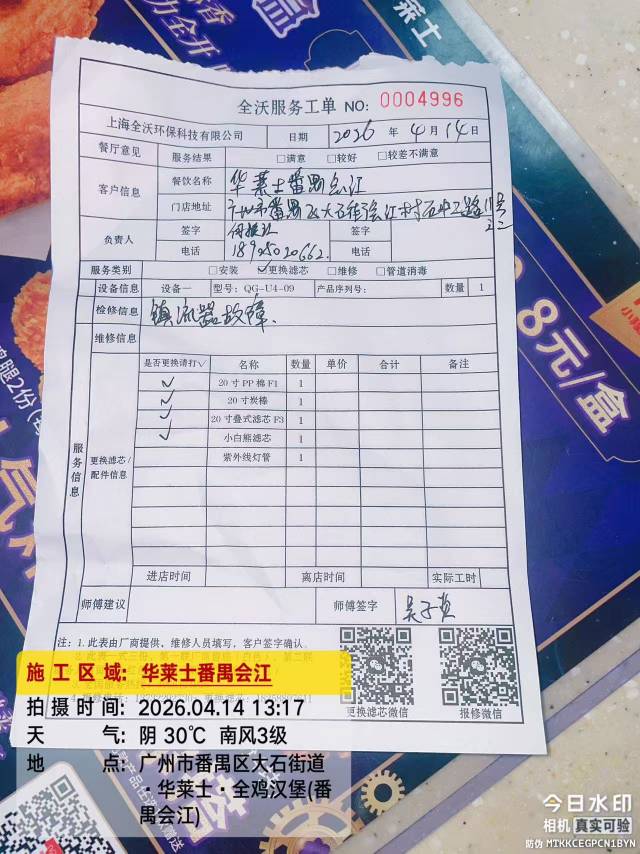 全沃服务工单 NO: 0004996
上海全沃环保科技有限公司 日期 2026 年 4月 14日
餐厅意见 服务结果 □满意 □较好 □较差不满意
客户信息 餐饮名称 华莱士番禺会江
门店地址 广州市番禺区大石街会江村石中二路
负责人 签字 签字
电话 电话
服务类别 □安装 ☑更换滤芯 □维修 □管道消毒
设备信息 设备一 型号: QG-U4-09 产品序列号: 数量 1
检修信息 镇流器故障.
维修信息
服务信息
更换滤芯/配件信息
是否更换请打√ 名称 数量 单价 合计 备注
✓ 20寸PP棉F1 1
✓ 20寸炭棒 1
✓ 20寸叠式滤芯F3 1
✓ 小白熊滤芯 1
紫外线灯管 1
进店时间 离店时间 实际工时
师傅建议 师傅签字
注: 1.此表由厂商提供、维修人员填写、客户签字确认。
更换滤芯微信 报修微信
施工区域: 华莱士番禺会江
拍摄时间: 2026.04.14 13:17
天气: 阴 30℃ 南风3级
地点: 广州市番禺区大石街道
·华莱士·全鸡汉堡(番
禺会江)
今日水印
相机 真实可验
防伪 MTKKCEGPCN1BYN
莱士
8元/盒
盒
力全开
鸡腿2份